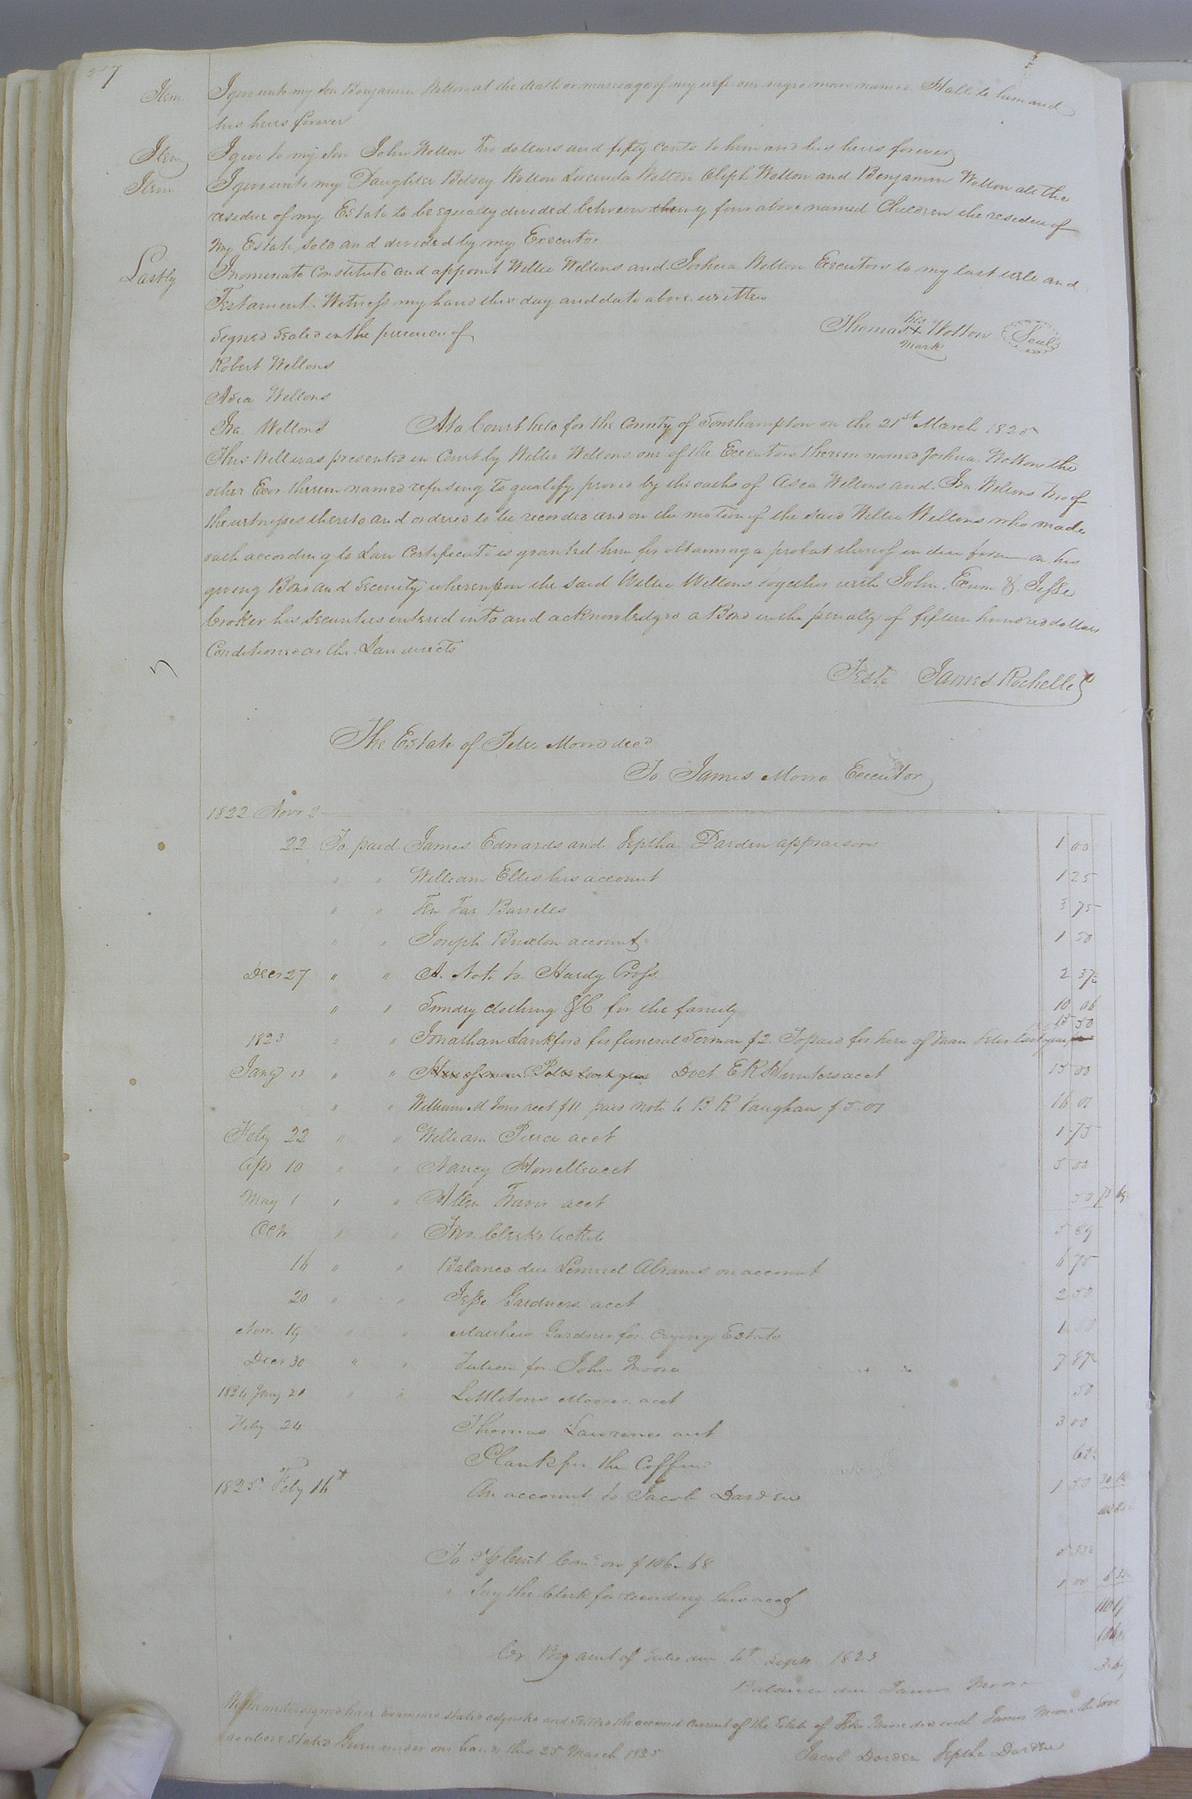 Item I give unto my Son Benjamin Wotton at the death or marriage of my wife one negro man named to him and
his heirs forever
Item I give to my Son John Wotton Two dollars and fifty cents to him and his heirs forever
Item I give unto my Daughter Betsey Wotton Lucinda Wotton Eliph Wotton and Benjamin Wotton all the
residue of my Estate to be equally divided between my four above named Children the residue of
My Estate sold and divided by my Executor
Lastly I nominate Constitute and appoint Willie Wellons and Joshua Wotton Executors to my last will and
Testament. Witness my hand this day and date above written
Signed Sealed in the presence of Thomas his X mark Wotton Seal
Robert Wellons
Asea Wellons
Ira Wellons At a Court held for the County of Southampton on the 21st March 1825
This Will was presented in Court by Willie Wellons one of the Executors therein named Joshua Wotton the
other Exor therein named refusing to qualify, proved by the oaths of Asea Wellons and Ira Wellons two of
the witnesses thereto and ordered to be recorded and on the motion of the said Willie Wellons who made
oath according to Law Certificate is granted him for obtaining a probat thereof in due form on his
giving Bond and Security whereupon the said Willie Wellons together with John Exum & Jesse
Crocker his securities entered into and acknowledged a Bond in the penalty of fifteen hundred dollars
Conditioned as the Law directs
Teste James Rochelle
The Estate of Peter Moore decd
To James Moore Executor
1822 Novr 2
22 To paid James Edwards and Jeptha Darden appraisors 1 00
" " William Ellis his account 1 25
" " Ten Tar Barrels 3 75
" " Joseph Buxton account 1 50
Decr 27 " " A Note to Hardy Cross 2 37½
" " Sundry clothing &C for the family 10 06
1823 " " Jonathan Lankford for funeral Sermon $2 To paid for hire of last year 15 50
Jany " " Doct E R Hunters acct 15 00
" " William M Jones acct $11 paid note to B R Vaughan $5.01 16 01
Feby 22 " " William Pierce acct 1 75
Apr 10 " " Nancy Howell acct 5 00
May 1 " " Allen Travis acct 50
Octr " " Two Clerks tickets 5 89
16 " " Balance due Lemuel Abrams on account 6 75
20 " " Jesse Gardners acct 2 50
Novr 19 " " Matthew Gardner for crying Estate
Decr 30 " " Tuition for John Moore 7 87½
1824 Jany 20 " " Littleton Moores acct 50
Feby 24 Thomas Lawrence acct 3 00
Plank for the Coffin 62½
1825 Feby 16t An account to Jacob Darden 1 50
To 5 p Cent Comn on $106.68
" Pay the Clerk for recording this acct 1 00
Cr By amt of Sales due Septr 1823
Balance due James Moore
We the undersigned have examined stated adjusted and settled the account current of the Estate of Peter Moore decd with James Moore the Exor
as above stated Given under our hands this 25 March 1825 Jacob Darden Jeptha Darden